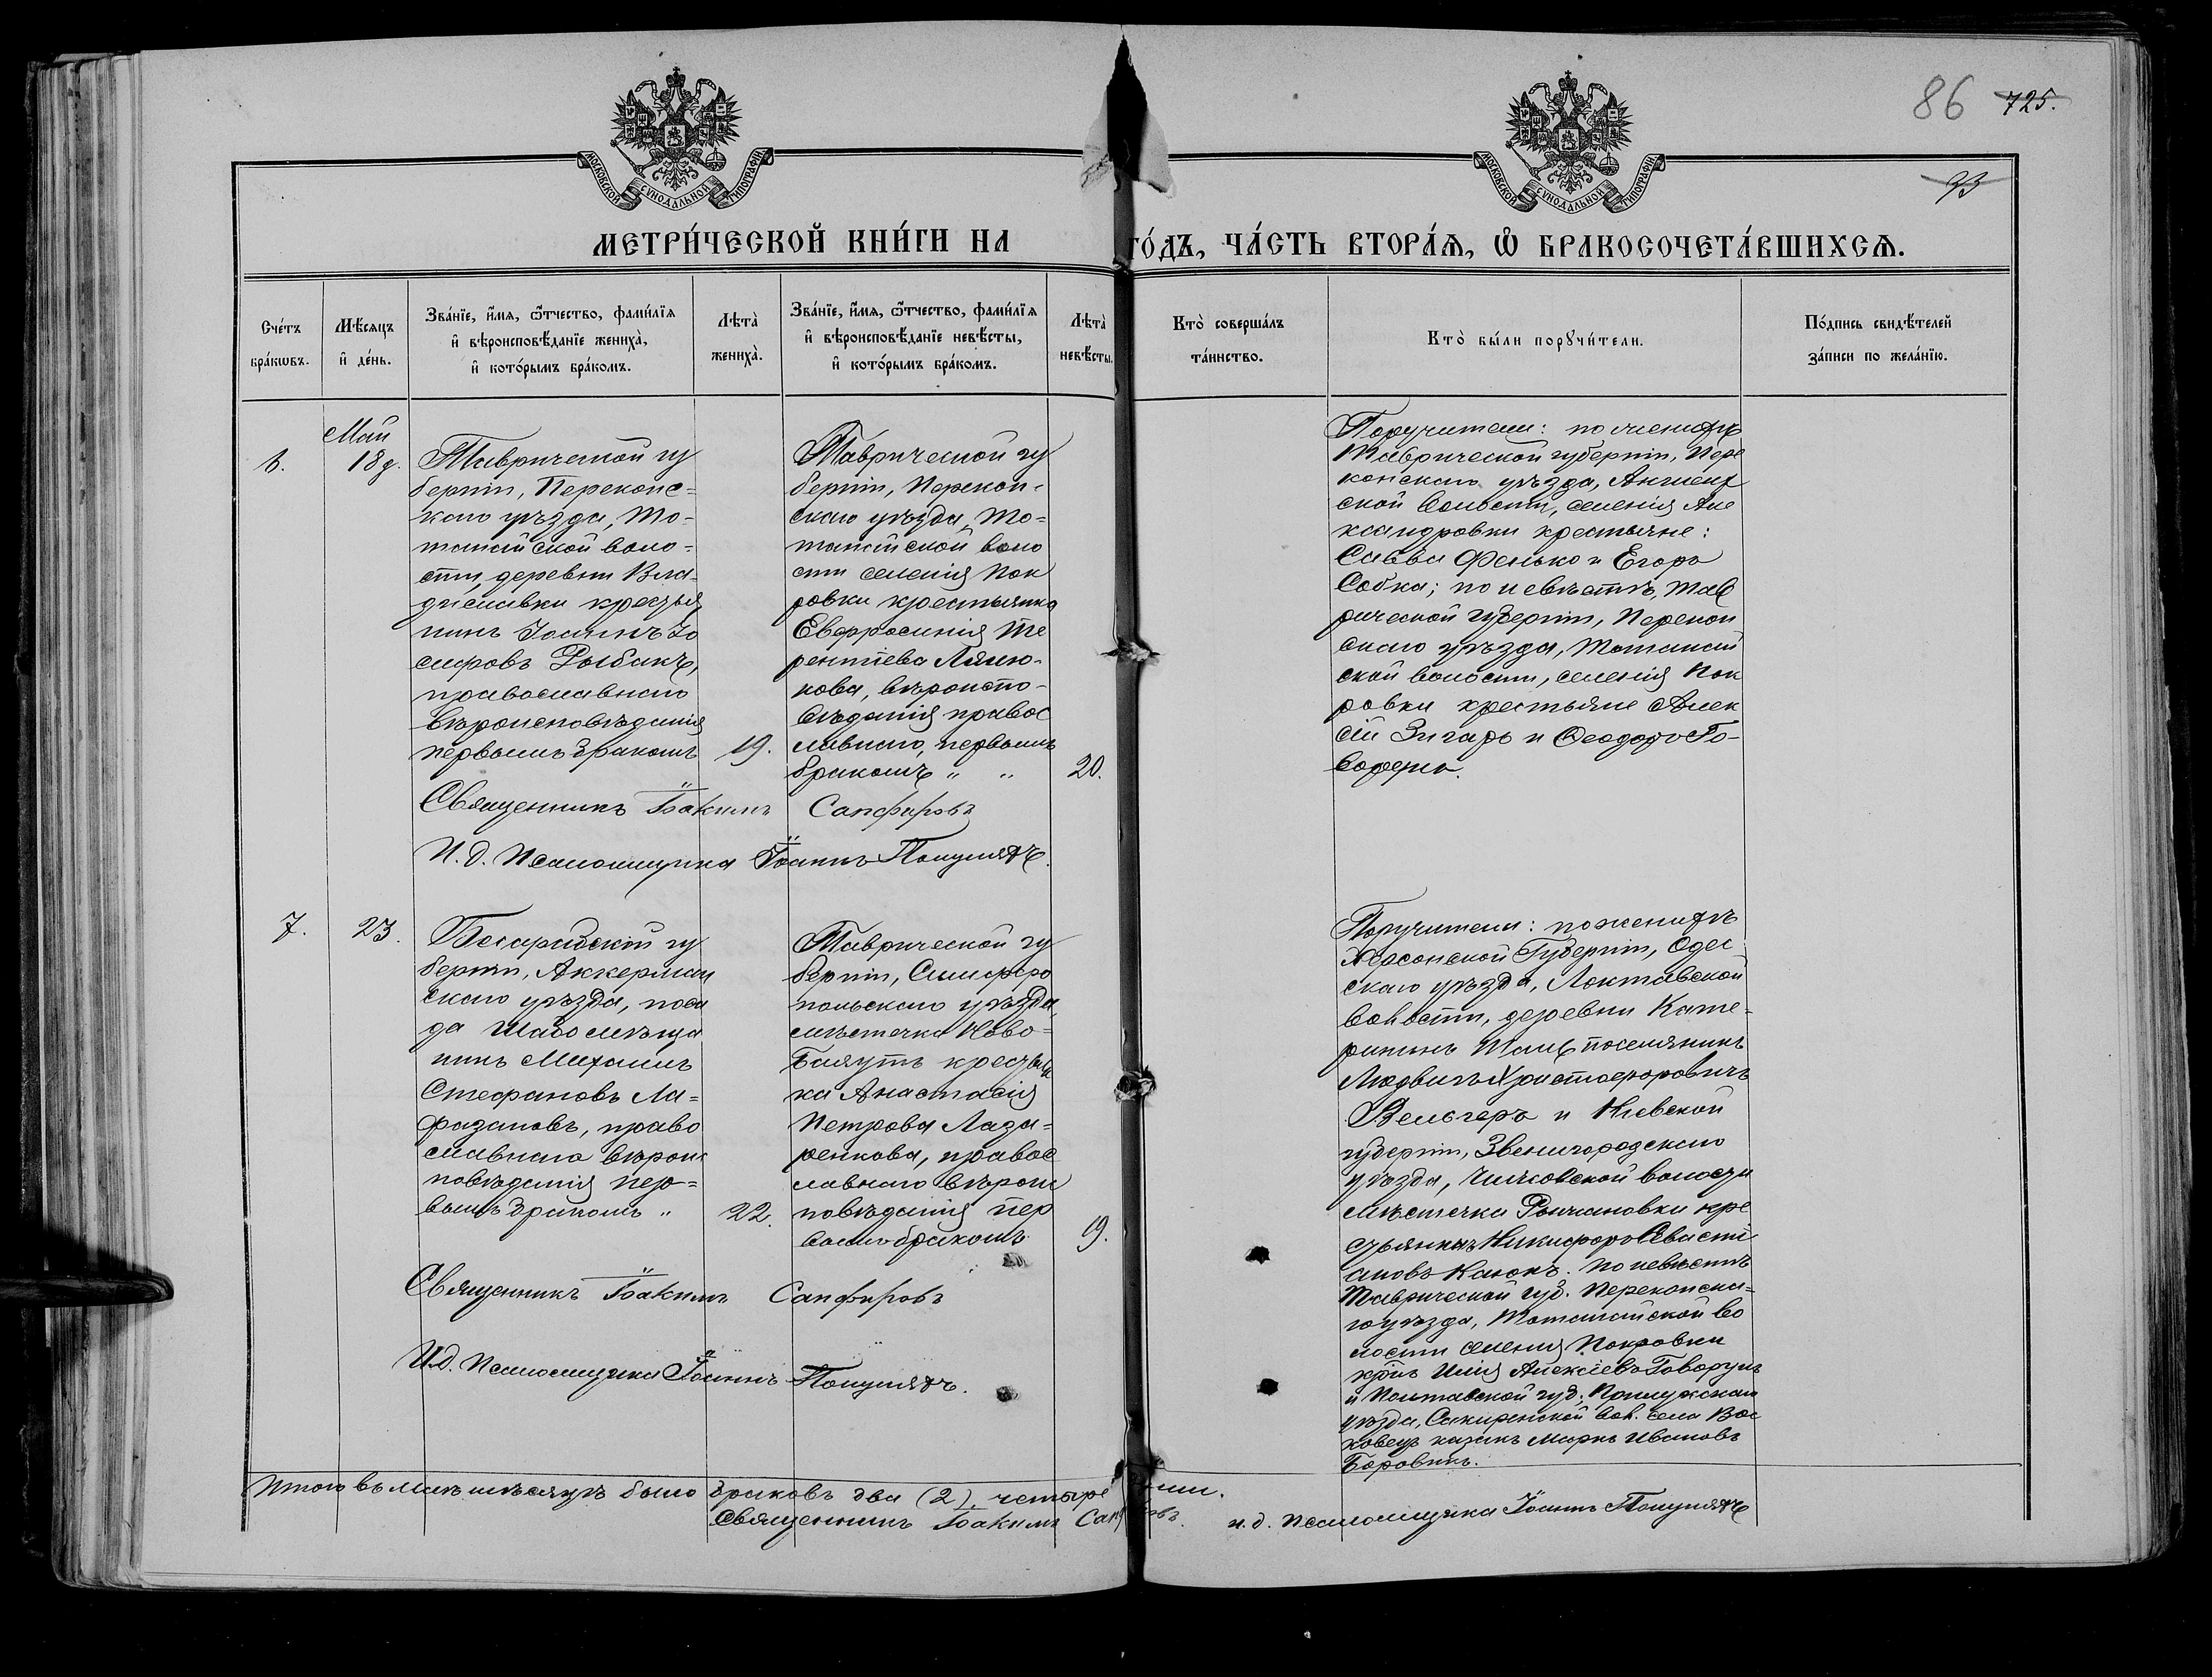 86 725.
33
МОСКОВСКОЙ СУНОДАЛЬНОЙ ТИПОГРАФІИ
МОСКОВСКОЙ СУНОДАЛЬНОЙ ТИПОГРАФІИ
МЕТРИ́ЧЕСКОЙ КНИ́ГИ НА ГО́ДЪ, ЧА́СТЬ ВТОРА́Я, Ѡ БРАКОСОЧЕТА́ВШИХСЯ.
Сче́тъ
бра́кωвъ.
Мѣ́сяцъ
и҆ де́нь.
Зва́нїе, и҆́мя, ѻ҆́тчество, фами́лїя
и҆ вѣроисповѣ́данїе жениха̀,
и҆ кото́рымъ бра́комъ.
Лѣта̀
жениха̀.
Зва́нїе, и҆́мя, ѻ҆́тчество, фами́лїя
и҆ вѣроисповѣ́данїе невѣ́сты,
и҆ кото́рымъ бра́комъ.
Лѣта̀
невѣ́сты.
Кто̀ соверша́лъ
та́инство.
Кто̀ бы́ли порꙋчи́тели.
По́дпись свидѣ́телей
за́писи по жела́нїю.
6.
Май
18 д.
Таврической гу
берніи, Перекопс=
каго уѣзда, То-
танайской воло=
сти, деревни Вла-
диславки крестья
нинъ Іоаннъ Іо
сифовъ Рыбакъ,
православнаго
вѣроисповѣданія
первымъ бракомъ
19.
Таврической гу
берніи, Перекоп-
скаго уѣзда, То=
танайской воло
сти селенія Пок
ровки крестьянка
Евфросинія Те
рентіева
кова, вѣроиспо-
вѣданія правос
лавнаго, первымъ
бракомъ " "
20.
Поручители: по женихѣ
Таврической губерніи, Пере
копскаго уѣзда,
ской волости, селенія Але
ксандровки крестьяне:
Савва Фенько и Егоръ
Собка; по невѣстѣ, Тав
рической губерніи, Перекоп
скаго уѣзда, Тотанай
ской волости, селенія Пок
ровки крестьяне Алек
сій Зигарь и Ѳеодоръ Го-
Священникъ Іоакимъ Сапфировъ
И. д. Псаломщика Іоаннъ
7.
23.
Бесарабской гу
берніи, Аккерман
скаго уѣзда, поса
да Шабо мѣща
нинъ Михаилъ
Стефановъ Ла=
фазановъ, право
славнаго вѣроис
повѣданія пер=
вымъ бракомъ "
22.
Таврической гу
берніи, Симферо
польскаго уѣзда,
мѣстечка Ново=
крестьян
ка Анастасія
Петрова Лаза=
ренкова, правос
лавнаго вѣроис
повѣданія пер
вымъ бракомъ
19.
Поручители: по женихѣ
Херсонской Губерніи, Одес
скаго уѣзда,
волости, деревни Кате-
поселянинъ
Людвигъ Христофоровичъ
Вельгеръ и Кіевской
губерніи, Звенигородскаго
уѣзда, волости
мѣстечка Рыжановки кре
стьянинъ Никифоръ Севасті
ановъ Каюкъ. по невѣстѣ
Таврической губ. Перекопска=
го уѣзда, Тотанайской во
лости селенія Покровки
крнъ Илія Алексіевъ Говорунъ
и Полтавской губ., Прилукскаго
уѣзда, вол. села
казакъ Маркъ Ивановъ
Боровикъ.
Священникъ Іоакимъ Сапфировъ
И.д. Псаломщика Іоаннъ
Итого въ маѣ мѣсяцѣ было браковъ два (2). четыре
Священникъ Іоакимъ и.д. псаломщика Іоаннъ